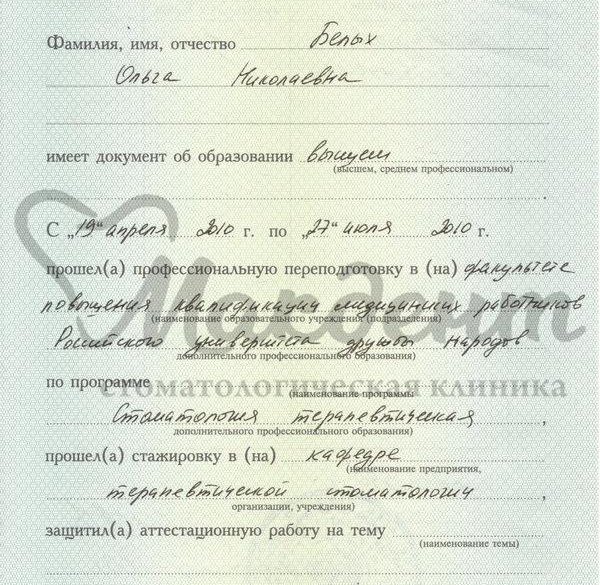 Фамилия, имя, отчество Белых
Ольга Николаевна
имеет документ об образовании высшем
(высшем, среднем профессиональном)
С „19“ апреля 2010 г. по „27“ июля 2010 г.
прошел(а) профессиональную переподготовку в (на) факультете
повышения квалификации медицинских работников
(наименование образовательного учреждения (подразделения)
Российского университета дружбы Народов
дополнительного профессионального образования)
по программе
(наименование программы
стоматологическая клиника
Стоматология терапевтическая,
дополнительного профессионального образования)
прошел(а) стажировку в (на) кафедре
(наименование предприятия,
терапевтической стоматологии,
организации, учреждения)
защитил(а) аттестационную работу на тему
(наименование темы)